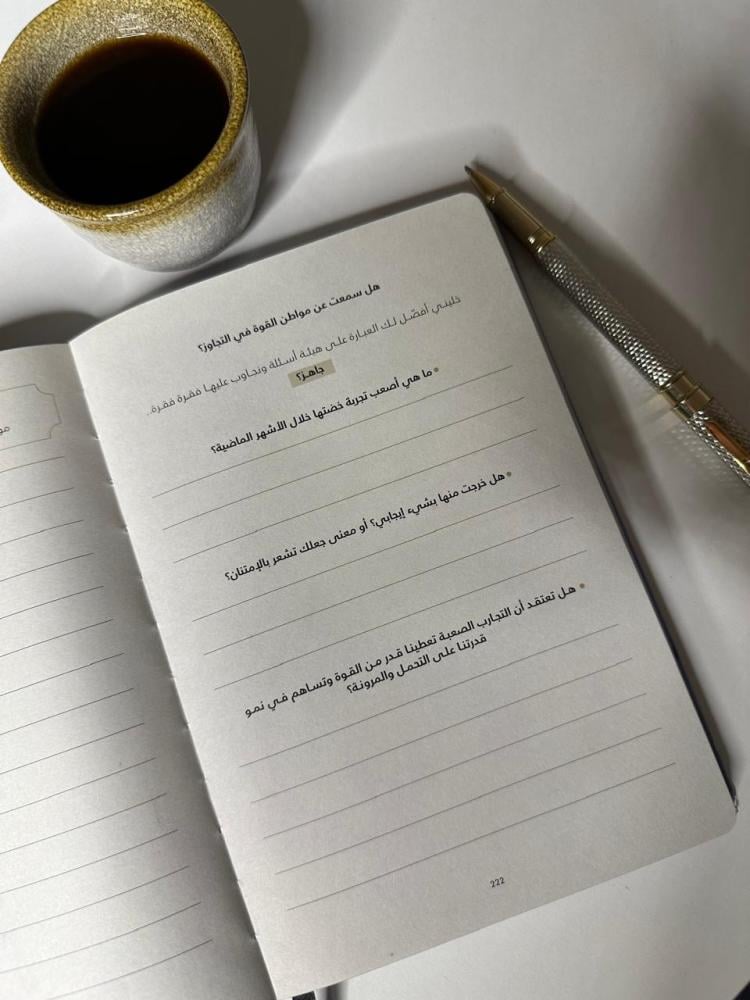 هل سمعت عن مواطن القوة في التجاوز؟
خليني أفصّل لك العبارة على هيئة أسئلة ونجاوب عليها فقرة فقرة..
جاهز؟
• ما هي أصعب تجربة خضتها خلال الأشهر الماضية؟
• هل خرجت منها بشيء إيجابي؟ أو معنى جعلك تشعر بالإمتنان؟
• هل تعتقد أن التجارب الصعبة تعطينا قدر من القوة وتساهم في نمو
قدرتنا على التحمل والمرونة؟
222